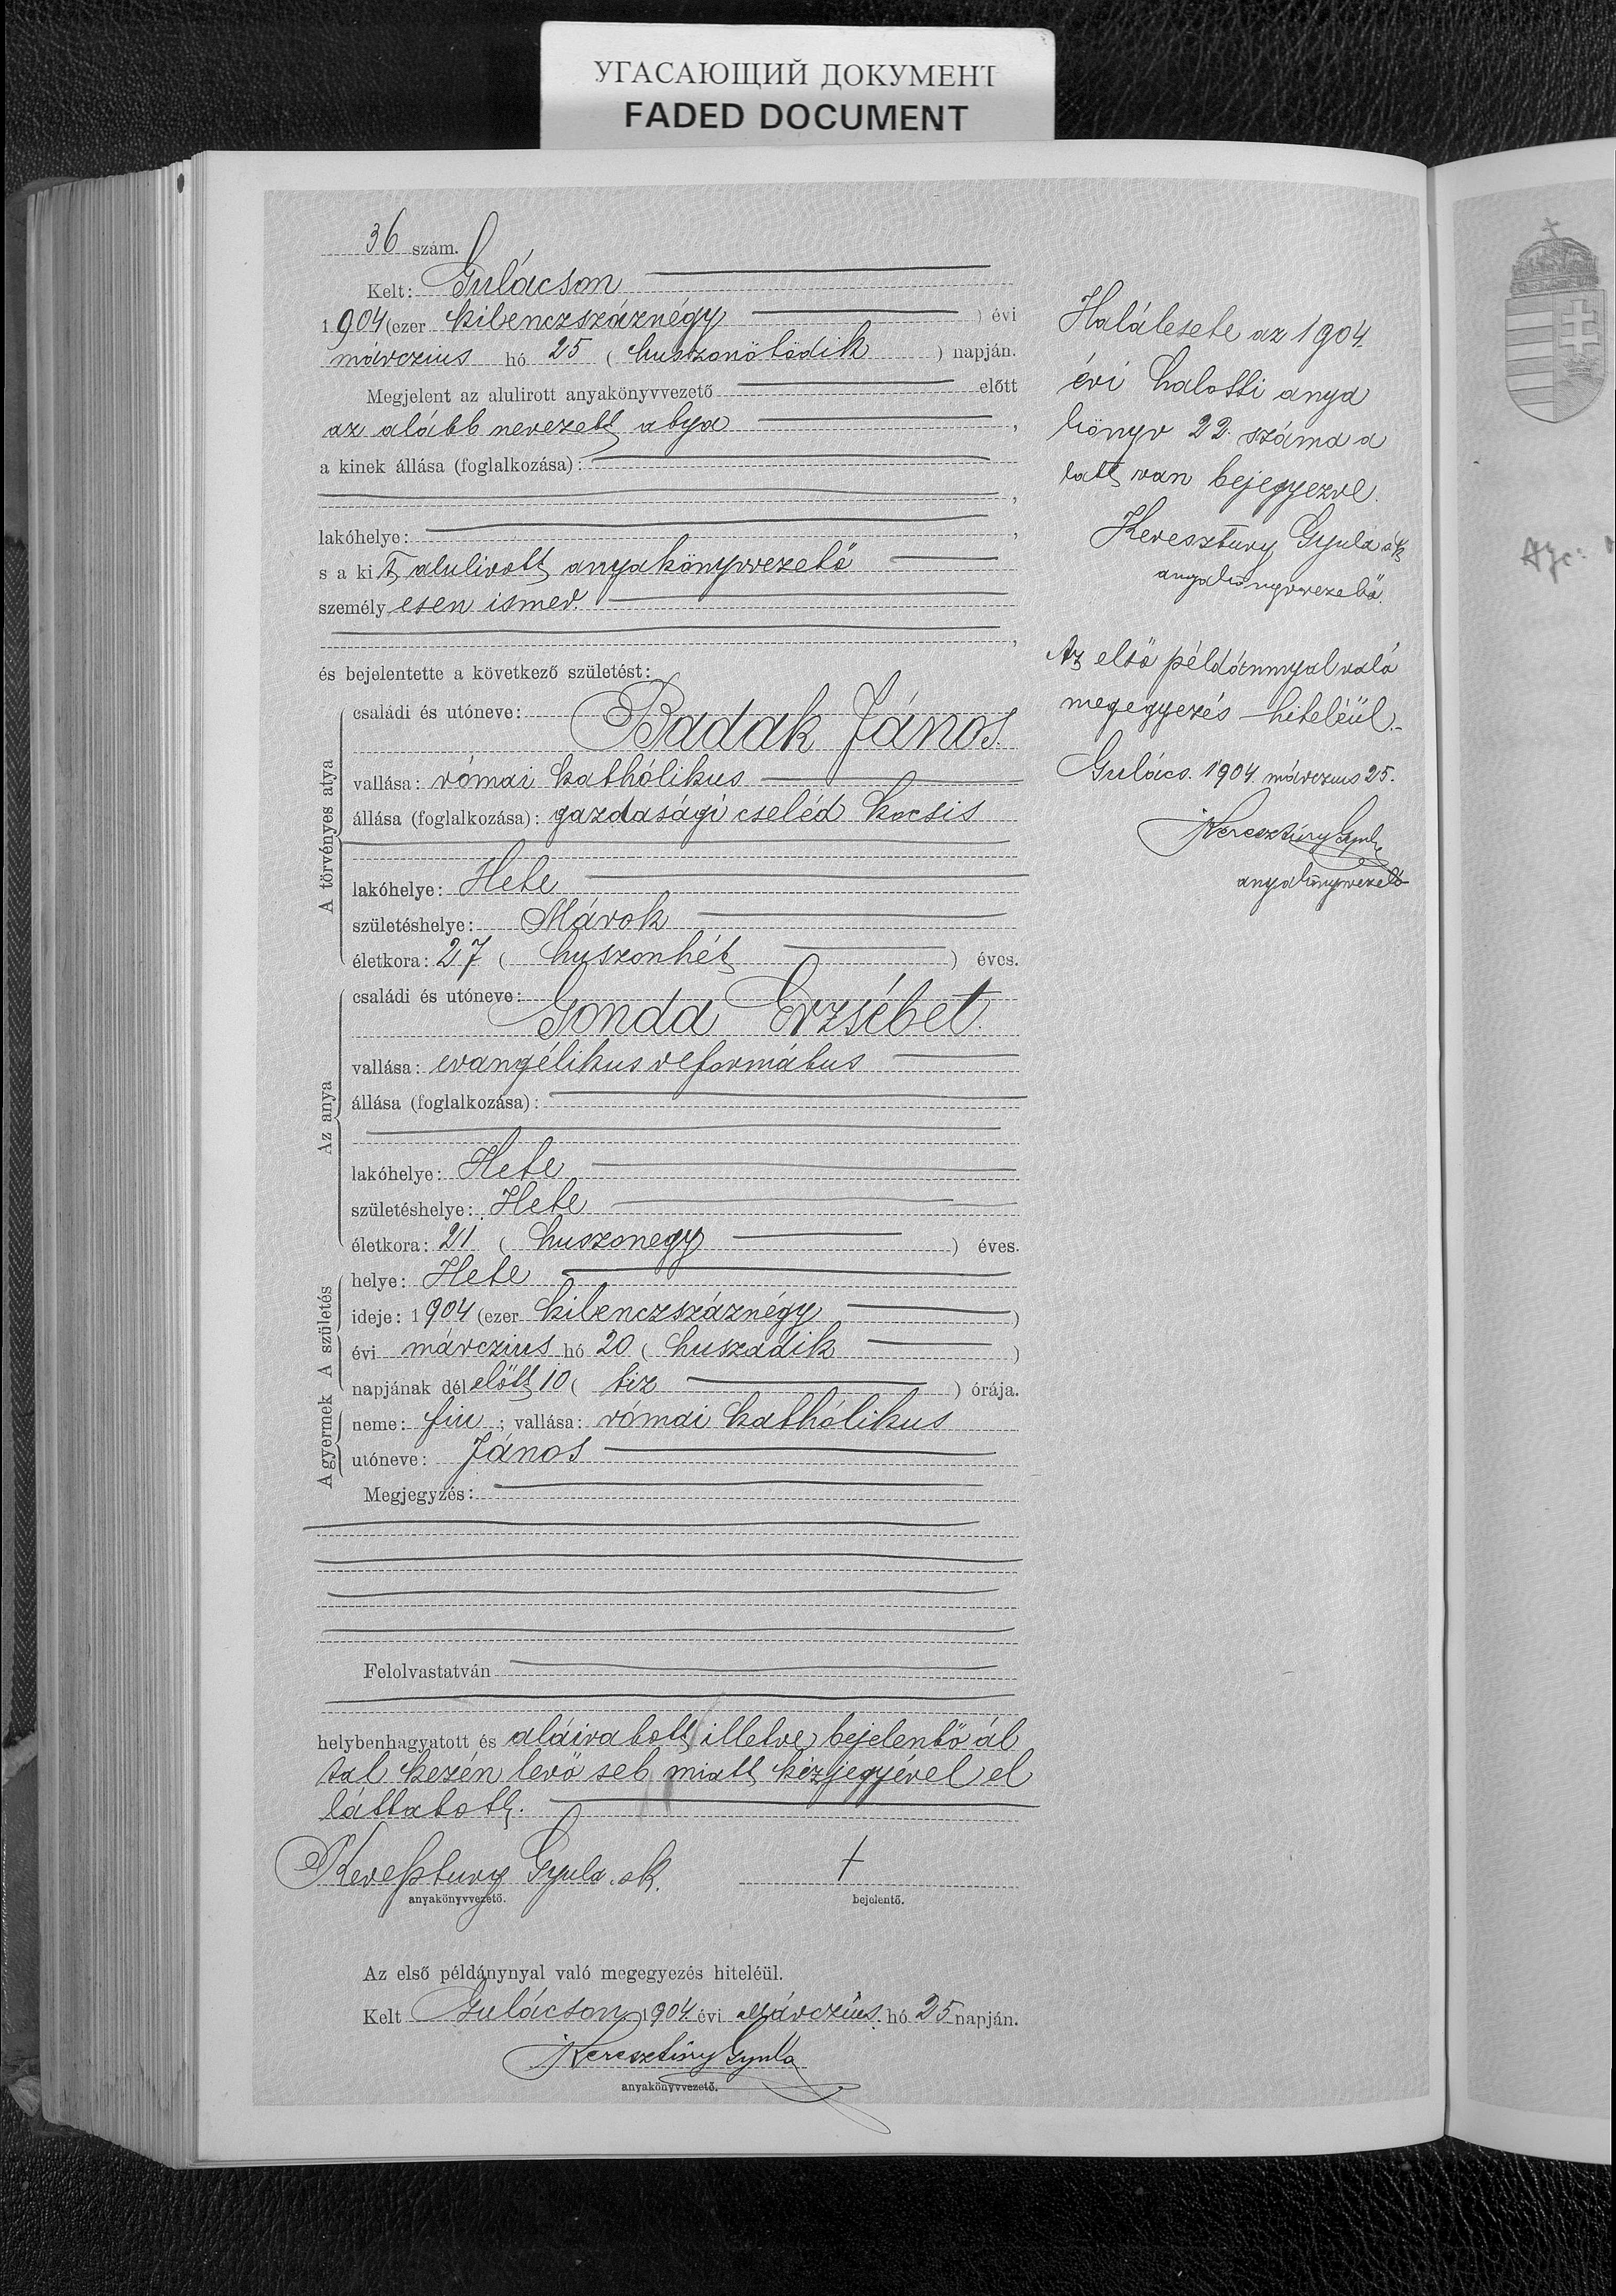 УГАСАЮЩИЙ ДОКУМЕНТ
FADED DOCUMENT
36 szám.
Kelt: Gulácson
1904 (ezer kilenczszáznégy) évi
márczius hó 25 (huszonötödik) napján.
Megjelent az alulirott anyakönyvvezető előtt
az alább nevezett atya,
a kinek állása (foglalkozása):
,
lakóhelye: ,
s a kit alulirott anyakönyvvezető
személyesen ismer.
,
és bejelentette a következő születést:
A törvényes atya
családi és utóneve:
Badak János.
vallása: római kathólikus
állása (foglalkozása): gazdasági cseléd kocsis
lakóhelye: Hete
születéshelye: Márok
életkora: 27 (huszonhét) éves.
Az anya
családi és utóneve:
Gonda Erzsébet.
vallása: evangélikus református
állása (foglalkozása):
lakóhelye: Hete
születéshelye: Hete
életkora: 21 (huszonegy) éves.
A születés
helye: Hete
ideje: 1904 (ezer kilenczszáznégy)
évi márczius hó 20 (huszadik)
napjának délelőtt 10 (tiz) órája.
A gyermek
neme: fiu; vallása: római kathólikus
utóneve: János
Megjegyzés:
Felolvastatván
helybenhagyatott és aláiratott illetve bejelentő ál
tal kezén levő seb miatt kézjegyével el
láttatott.
Keresztury Gyula sk.
anyakönyvvezető.
†
bejelentő.
Az első példánynyal való megegyezés hiteléül.
Kelt Gulácson 1904 évi Márczius hó 25 napján.
Keresztúry Gyula
anyakönyvvezető.
Halálesete az 1904.
évi halotti anya
könyv 22. száma a
latt van bejegyezve.
Keresztury Gyula sk
anyakönyvvezető.
Az első példánnyal való
megegyezés hiteléül.
Gulács. 1904. márczius 25.
Keresztúry Gyula
anyakönyvvezető